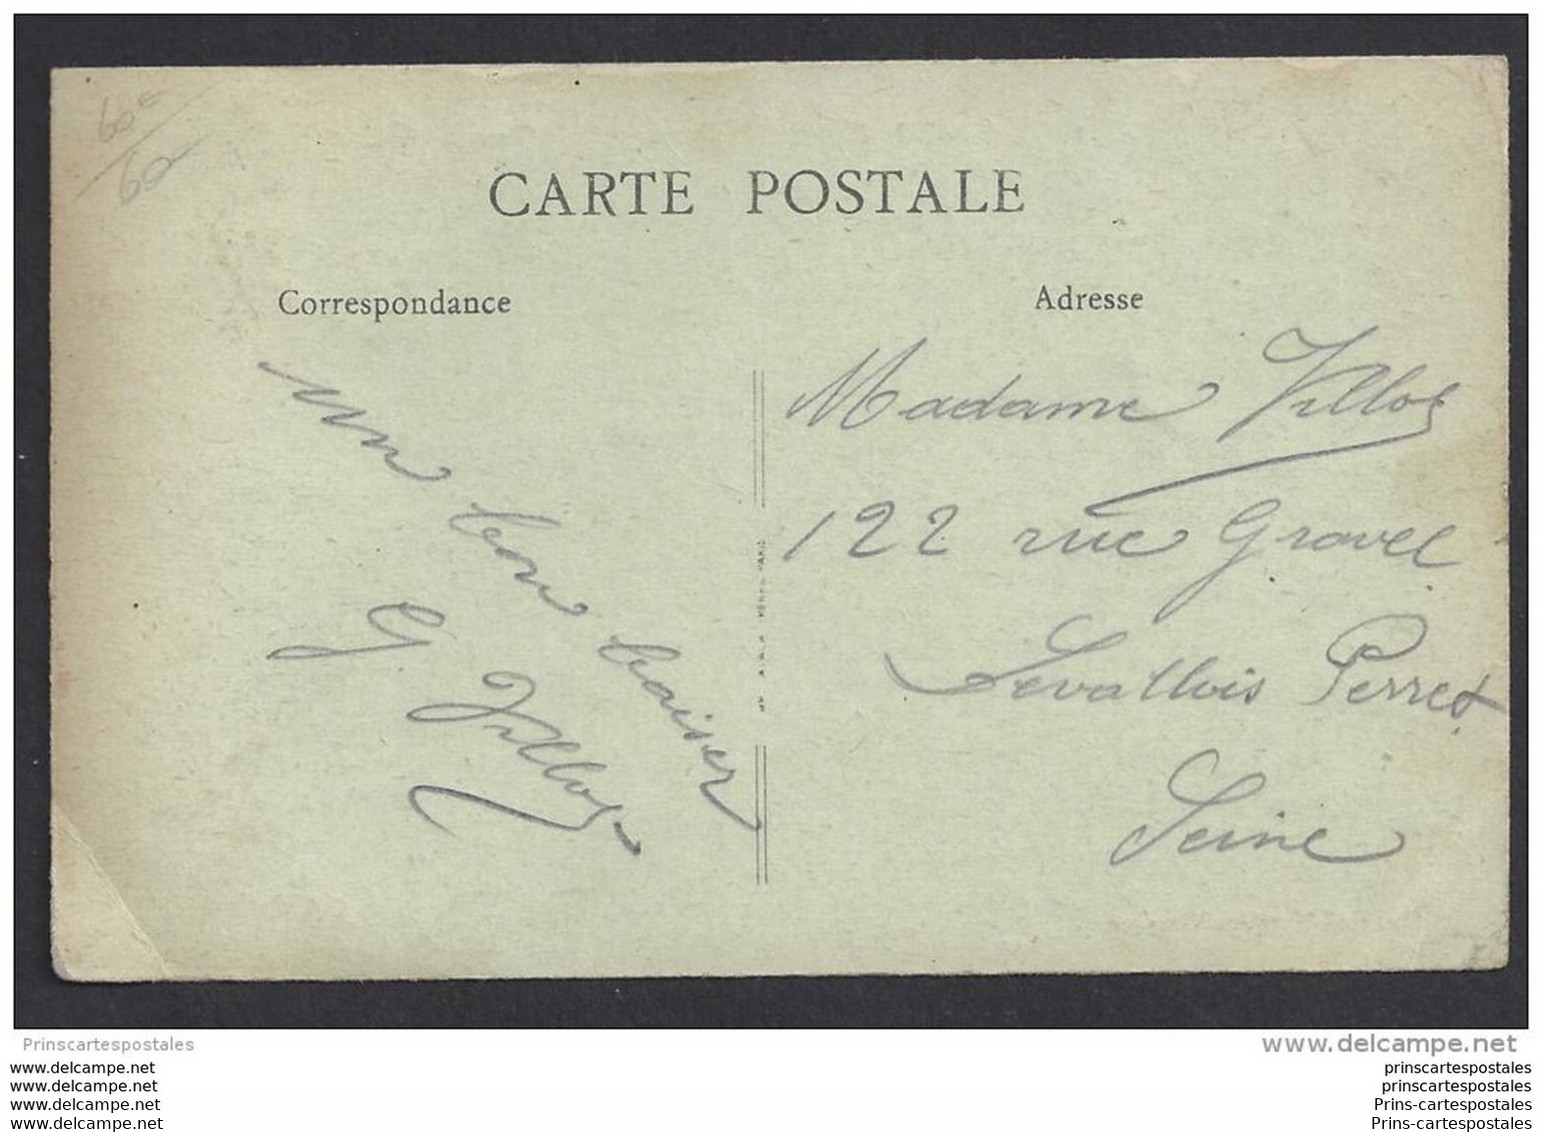 60€
60
CARTE POSTALE
Correspondance
Adresse
un bon baiser
G. Villot
Madame Villot
122 rue Gravel
Levallois Perret
Seine
Prinscartespostales
www.delcampe.net
www.delcampe.net
www.delcampe.net
www.delcampe.net
www.delcampe.net
prinscartespostales
prinscartespostales
Prins-cartespostales
Prins-cartespostales